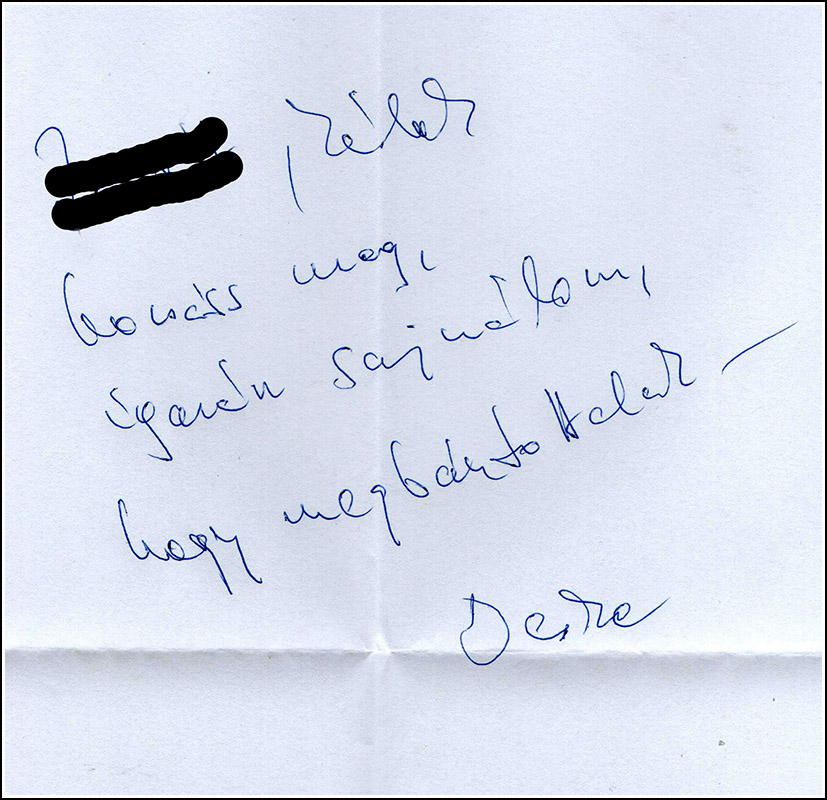 kérlek
bocsáss meg,
igazán sajnálom,
hogy megbántottalak –